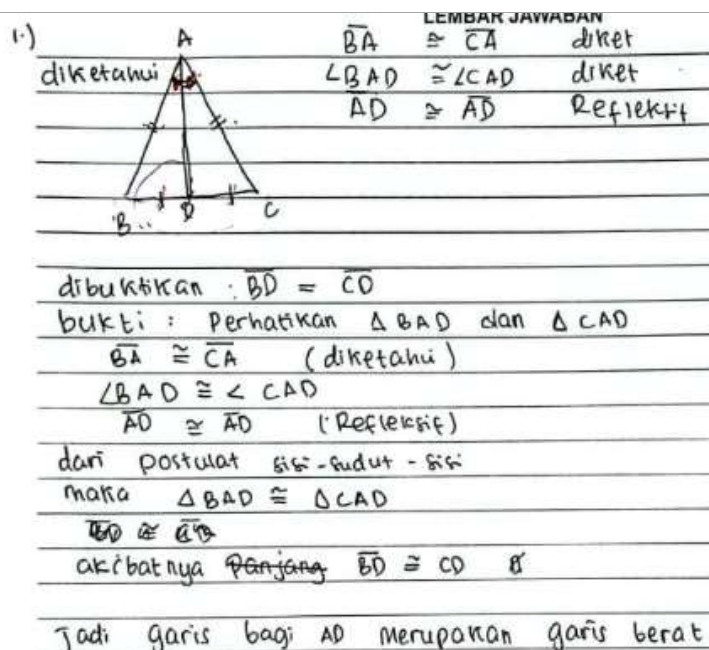 LEMBAR JAWABAN
1.) A B̅A̅ ≅ C̅A̅ diket
diketahui ∠BAD ≅ ∠CAD diket
A̅D̅ ≅ A̅D̅ Reflektif
B D C
dibuktikan : B̅D̅ = C̅D̅
bukti : Perhatikan Δ BAD dan Δ CAD
B̅A̅ ≅ C̅A̅ (diketahui)
∠BAD ≅ ∠ CAD
A̅D̅ ≅ A̅D̅ (Refleksif)
dari postulat sisi-sudut-sisi
maka Δ BAD ≅ Δ CAD
akibatnya panjang B̅D̅ ≅ CD
Jadi garis bagi AD merupakan garis berat